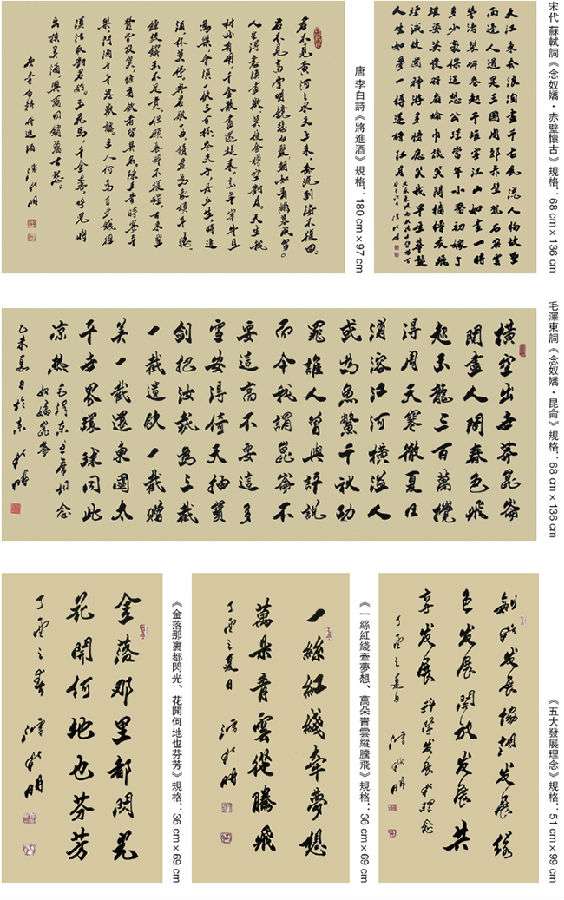 宋代蘇軾詞《念奴嬌·赤壁懷古》規格：68 cm x 136 cm
大江東去浪淘盡千古風流人物故壘
西邊人道是三國周郎赤壁亂石崩雲
驚濤裂岸捲起千堆雪江山如畫一時
多少豪傑遙想公瑾當年小喬初嫁了
雄姿英發羽扇綸巾談笑間檣櫓灰飛煙
滅故國神遊多情應笑我早生華髮
人生如夢一尊還酹江月
唐 李白詩《將進酒》規格：180 cm x 97 cm
君不見黃河之水天上來奔流到海不復回
君不見高堂明鏡悲白髮朝如青絲暮成雪
人生得意須盡歡莫使金樽空對月天生我
材必有用千金散盡還復來烹羊宰牛且
為樂會須一飲三百杯岑夫子丹丘生將進
酒杯莫停與君歌一曲請君為我傾耳聽
鐘鼓饌玉不足貴但願長醉不願醒古來聖
賢皆寂寞惟有飲者留其名陳王昔時宴平
樂斗酒十千恣歡謔主人何為言少錢徑
須沽取對君酌五花馬千金裘呼兒將
出換美酒與爾同銷萬古愁
唐李白詩將進酒
毛澤東詞《念奴嬌·昆侖》規格：68 cm x 136 cm
橫空出世莽崑崙
閱盡人間春色飛
起玉龍三百萬攪
得周天寒徹夏日
消溶江河橫溢人
或為魚鱉千秋功
罪誰人曾與評說
而今我謂崑崙不
要這高不要這多
雪安得倚天抽寶
劍把汝裁為三截
一截遺欧一截贈
美一截還東國太
平世界環球同此
涼熱 毛澤東主席詞念
奴嬌崑崙
《五大發展理念》規格：51 cm x 99 cm
創新發展協調發展綠
色發展開放發展共
享發展
《一絲紅綫牽夢想、萬朵青雲縱騰飛》規格：36 cm x 69 cm
一絲紅綫牽夢想
萬朵青雲縱騰飛
《金落那裏都閃光、花開何地也芬芳》規格：36 cm x 69 cm
金落那里都閃光
花開何地也芬芳